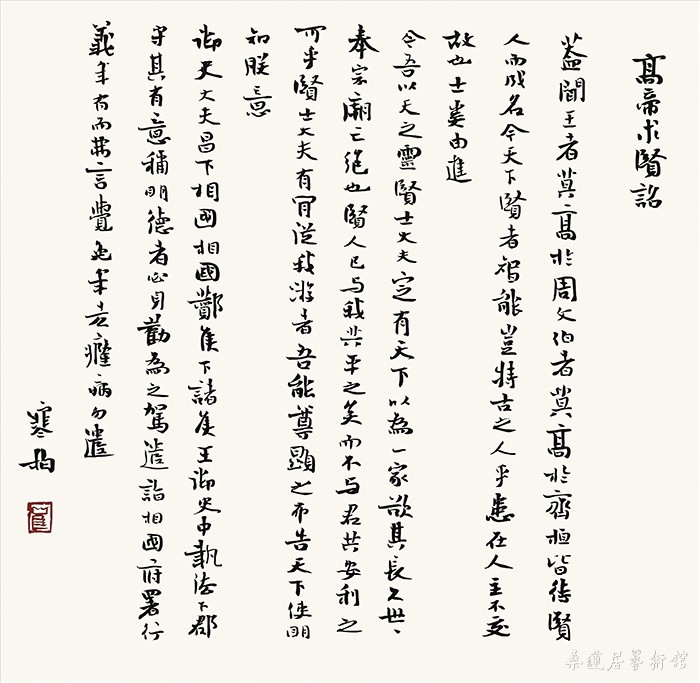 高帝求賢詔
蓋聞王者莫高於周文伯者莫高於齊桓皆待賢
人而成名今天下賢者智能豈特古之人乎患在人主不交
故也士奚由進
今吾以天之靈賢士大夫定有天下以為一家欲其長久世〻
奉宗廟亡絕也賢人已与我共平之矣而不与君共安利之
可乎賢士大夫有肯從我游者吾能尊顯之布告天下使明
知朕意
御史大夫昌下相國相國酇侯下諸侯王御史中執法下郡
守其有意稱明德者必身勸為之駕遣詣相國府署行
義年有而弗言覺免年老癃病勿遣
寒
桑蓮居藝術館